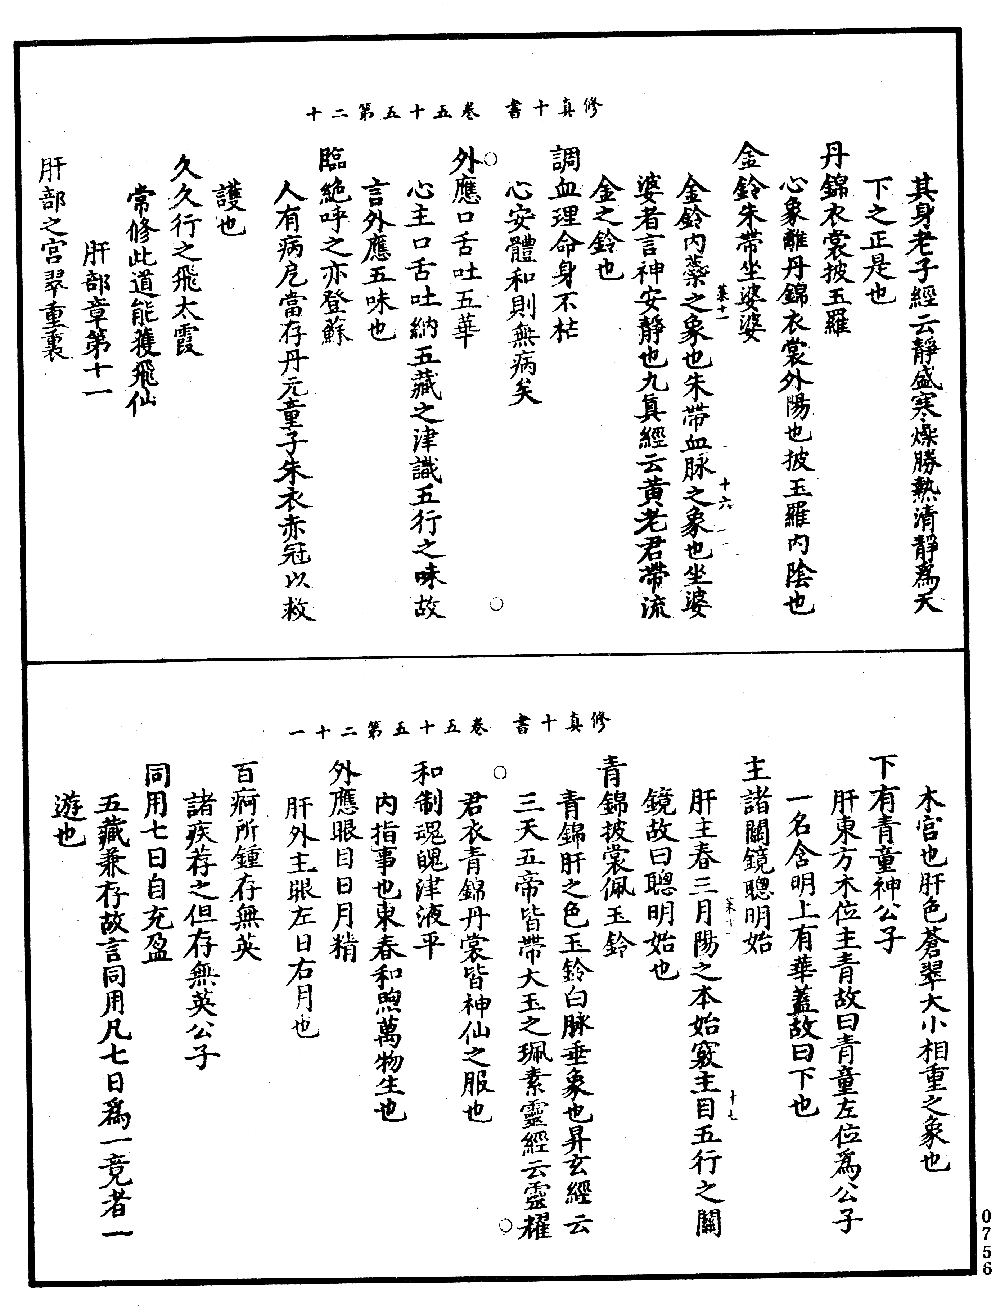 修真十書　卷五十五第二十
其身老子經云靜盛寒燥勝熱清靜爲天
下之正是也
丹錦衣裳披玉羅
心象離丹錦衣裳外陽也披玉羅內陰也
金鈴朱帶坐婆婆
菜十一
十六
金鈴內藥之象也朱帶血脉之象也坐婆
婆者言神安靜也九真經云黃老君帶流
金之鈴也
調血理命身不枯
心安體和則無病矣
外應口舌吐五華
心主口舌吐納五藏之津識五行之味故
言外應五味也
臨絕呼之亦登蘇
人有病厄當存丹元童子朱衣赤冠以救
護也
久久行之飛太霞
常修此道能獲飛仙
肝部章第十一
肝部之宮翠重裏
修真十書　卷五十五第二十一
木官也肝色蒼翠大小相重之象也
下有青童神公子
肝東方木位主青故曰青童左位爲公子
一名含明上有華蓋故曰下也
主諸關鏡聰明始
十七
肝主春三月陽之本始竅主目五行之關
鏡故曰聰明始也
青錦披裳佩玉鈴
青錦肝之色玉鈴白脉垂象也昇玄經云
三天五帝皆帶大玉之珮素靈經云靈耀
君衣青錦丹裳皆神仙之服也
和制魂魄津液平
內指事也東春和煦萬物生也
外應眼目日月精
肝外主眼左日右月也
百痾所鍾存無英
諸疾荐之但存無英公子
同用七日自充盈
五藏兼存故言同用凡七日爲一竟者一
遊也
0756